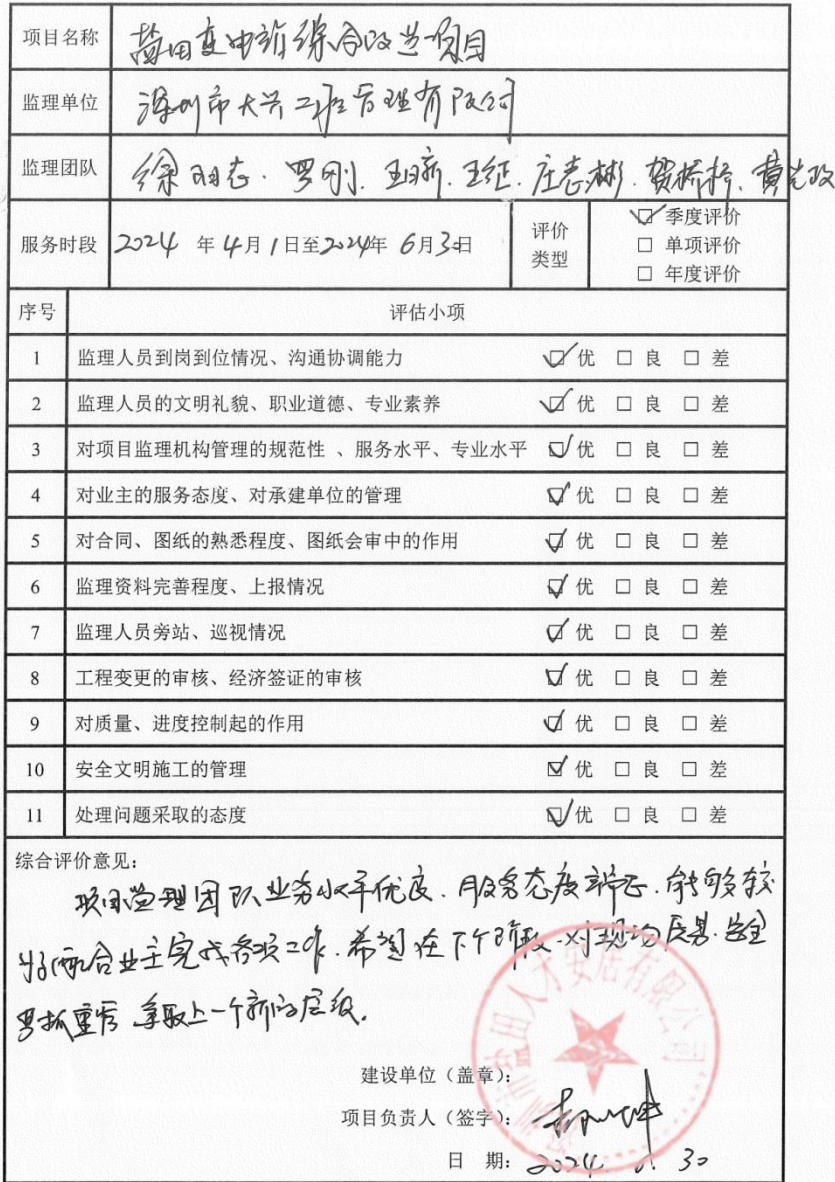 项目名称 盐田变电站综合改造项目
监理单位 深圳市大兴工程管理有限公司
监理团队 徐 志 罗刚 王 新 王征 庄志彬 贺桥 黄
服务时段 2024 年 4月 1日至2024年 6月30日 评价类型 ☑ 季度评价
☐ 单项评价
☐ 年度评价
序号 评估小项
1 监理人员到岗到位情况、沟通协调能力 ☑ 优 ☐ 良 ☐ 差
2 监理人员的文明礼貌、职业道德、专业素养 ☑ 优 ☐ 良 ☐ 差
3 对项目监理机构管理的规范性 、服务水平、专业水平 ☑ 优 ☐ 良 ☐ 差
4 对业主的服务态度、对承建单位的管理 ☑ 优 ☐ 良 ☐ 差
5 对合同、图纸的熟悉程度、图纸会审中的作用 ☑ 优 ☐ 良 ☐ 差
6 监理资料完善程度、上报情况 ☑ 优 ☐ 良 ☐ 差
7 监理人员旁站、巡视情况 ☑ 优 ☐ 良 ☐ 差
8 工程变更的审核、经济签证的审核 ☑ 优 ☐ 良 ☐ 差
9 对质量、进度控制起的作用 ☑ 优 ☐ 良 ☐ 差
10 安全文明施工的管理 ☑ 优 ☐ 良 ☐ 差
11 处理问题采取的态度 ☑ 优 ☐ 良 ☐ 差
综合评价意见：
项目监理团队业务水平优良.服务态度端正.能够较
好配合业主完成各项工作.希望在下个阶段.对现场质量.安全
要抓重管 争取上一个新的层级.
建设单位（盖章）：
盐田人才安居有限公司
项目负责人（签字）：
日 期： 2024 30